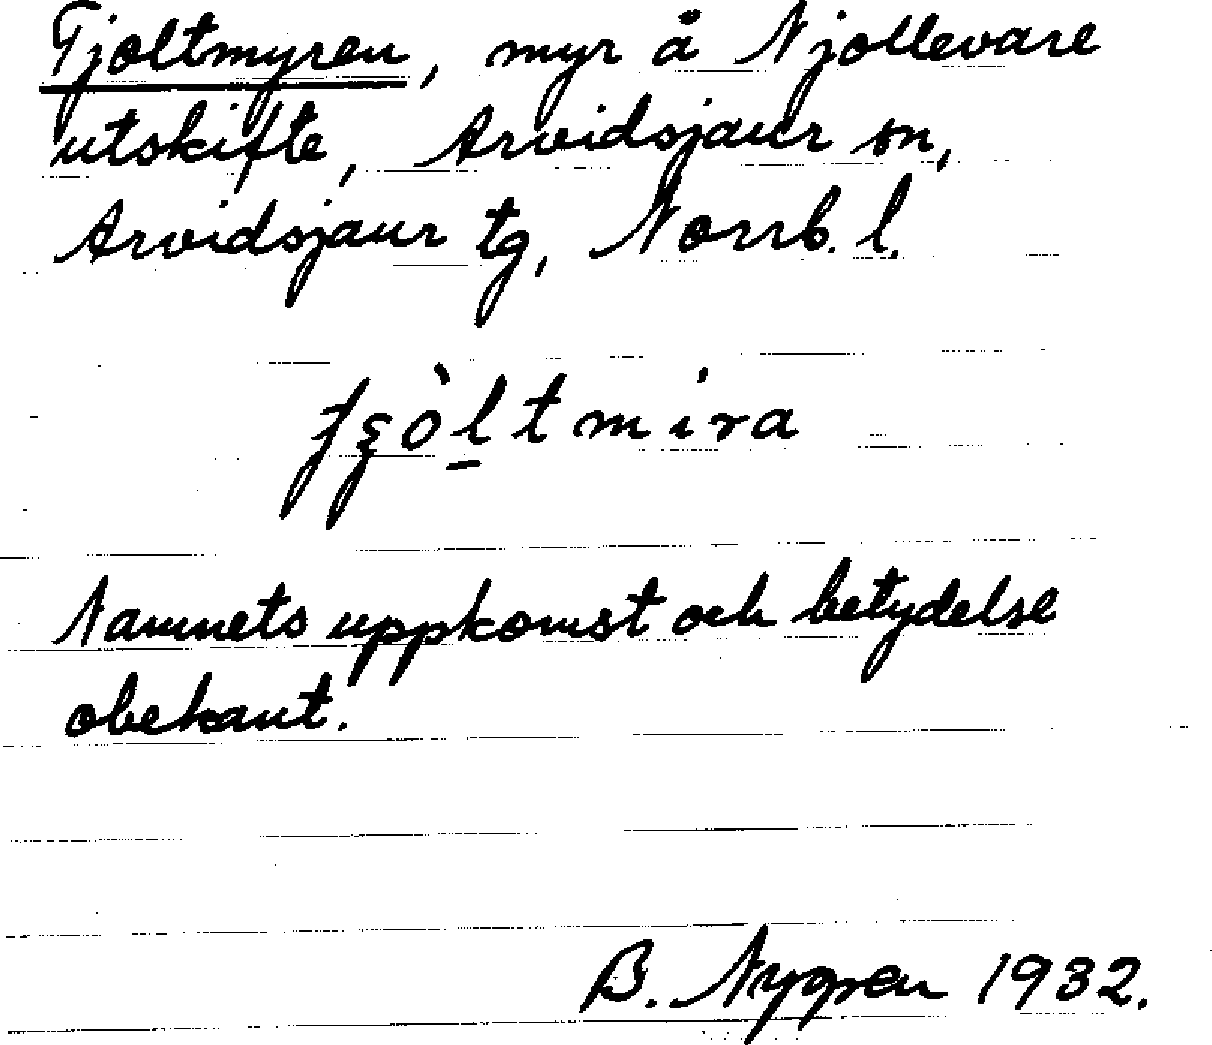 Tjoltmyren, myr å Njollevare
utskifte, Arvidsjaur sn,
Arvidsjaur tg, Norrb. l.
Namnets uppkomst och betydelse
obekant.
B. Nygren 1932.